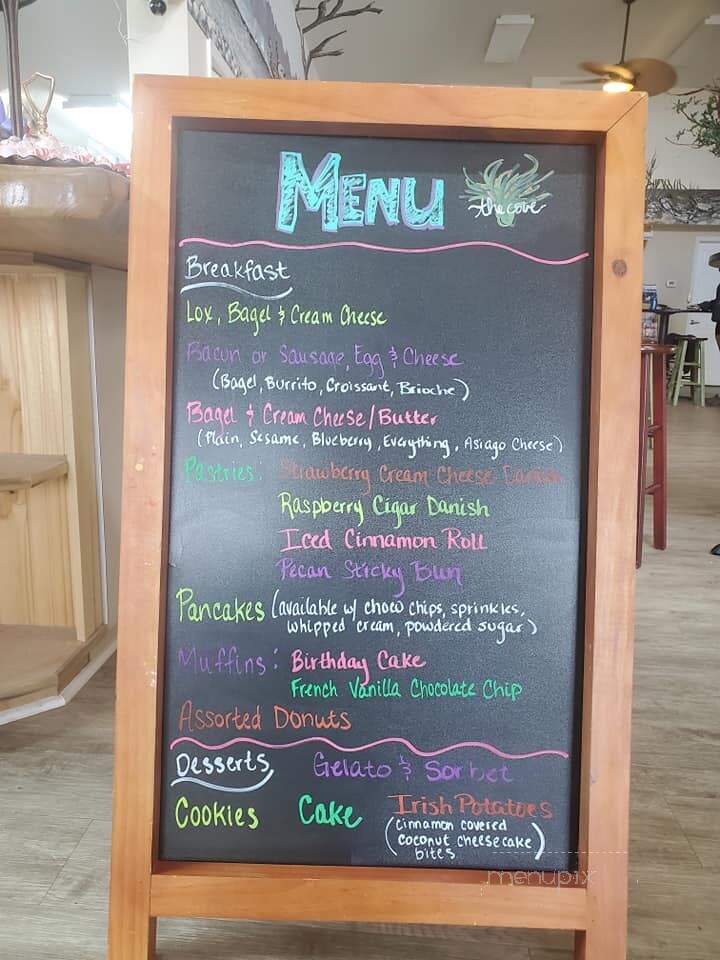 MENU
the cove
Breakfast
Lox, Bagel & Cream Cheese
Bacon or Sausage, Egg & Cheese
(Bagel, Burrito, Croissant, Brioche)
Bagel & Cream Cheese/Butter
(Plain, Sesame, Blueberry, Everything, Asiago Cheese)
Pastries: Strawberry Cream Cheese Danish
Raspberry Cigar Danish
Iced Cinnamon Roll
Pecan Sticky Bun
Pancakes (available w/ choco chips, sprinkles,
whipped cream, powdered sugar)
Muffins: Birthday Cake
French Vanilla Chocolate Chip
Assorted Donuts
Desserts Gelato & Sorbet
Cookies Cake Irish Potatoes
(cinnamon covered
coconut cheesecake
bites)
menupix